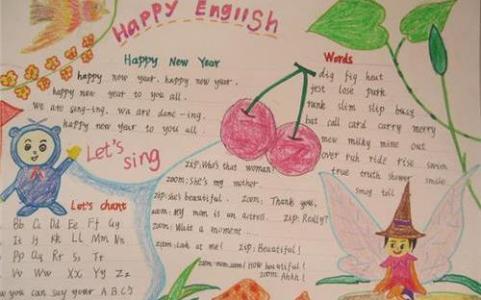 Happy EngliSh
Happy New Year
happy new year. happy new year.
happy new year to you all.
we are sing-ing. we are danc-ing.
happy new year to you all.
Let's
sing
Let's chant
Bb Cc Dd Ee Ff Gg
Ii Jj Kk Ll Mm Nn
Pp Qq Rr Ss Tt
Vv Ww Xx Yy Zz
you can say your A.B.C's
Words
dig fig heat
jest lose park
tank slim slip busy
but call card carry merry
mew milky mine out
over ruh ride rise swim
true truth shower smile
smog tall
zip: Who's that woman?
zoom: She's my mother.
zip: she's beautiful. zoom: Thank you.
zoom: My mom is an actress. zip: Really?
zoom: Wait a moment ....
zoom: Look at me! zip: Beautiful!
zoom: mom.mom! How beautiful!
zoom: Ahhh!